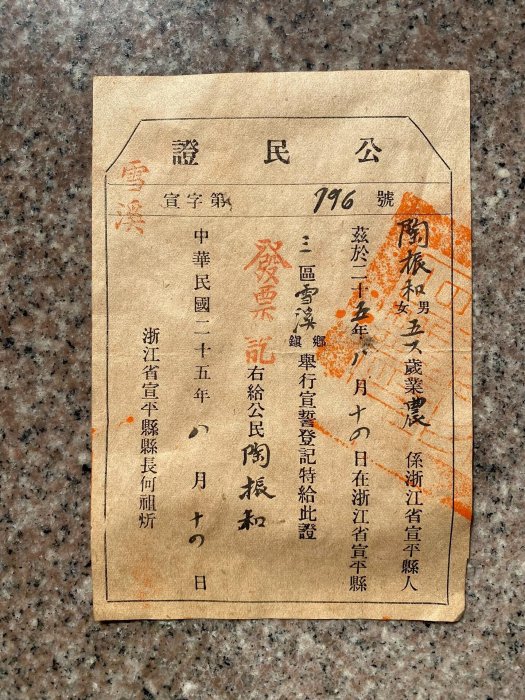 公民證
宣字第796號
陶振和 男女 五歲業農 係浙江省宣平縣人
茲於二十五年八月十四日在浙江省宣平縣
三區雪溪鄉鎮舉行宣誓登記特給此證
發票記
右給公民陶振和
中華民國二十五年八月十四日
浙江省宣平縣縣長何祖炘
雪溪